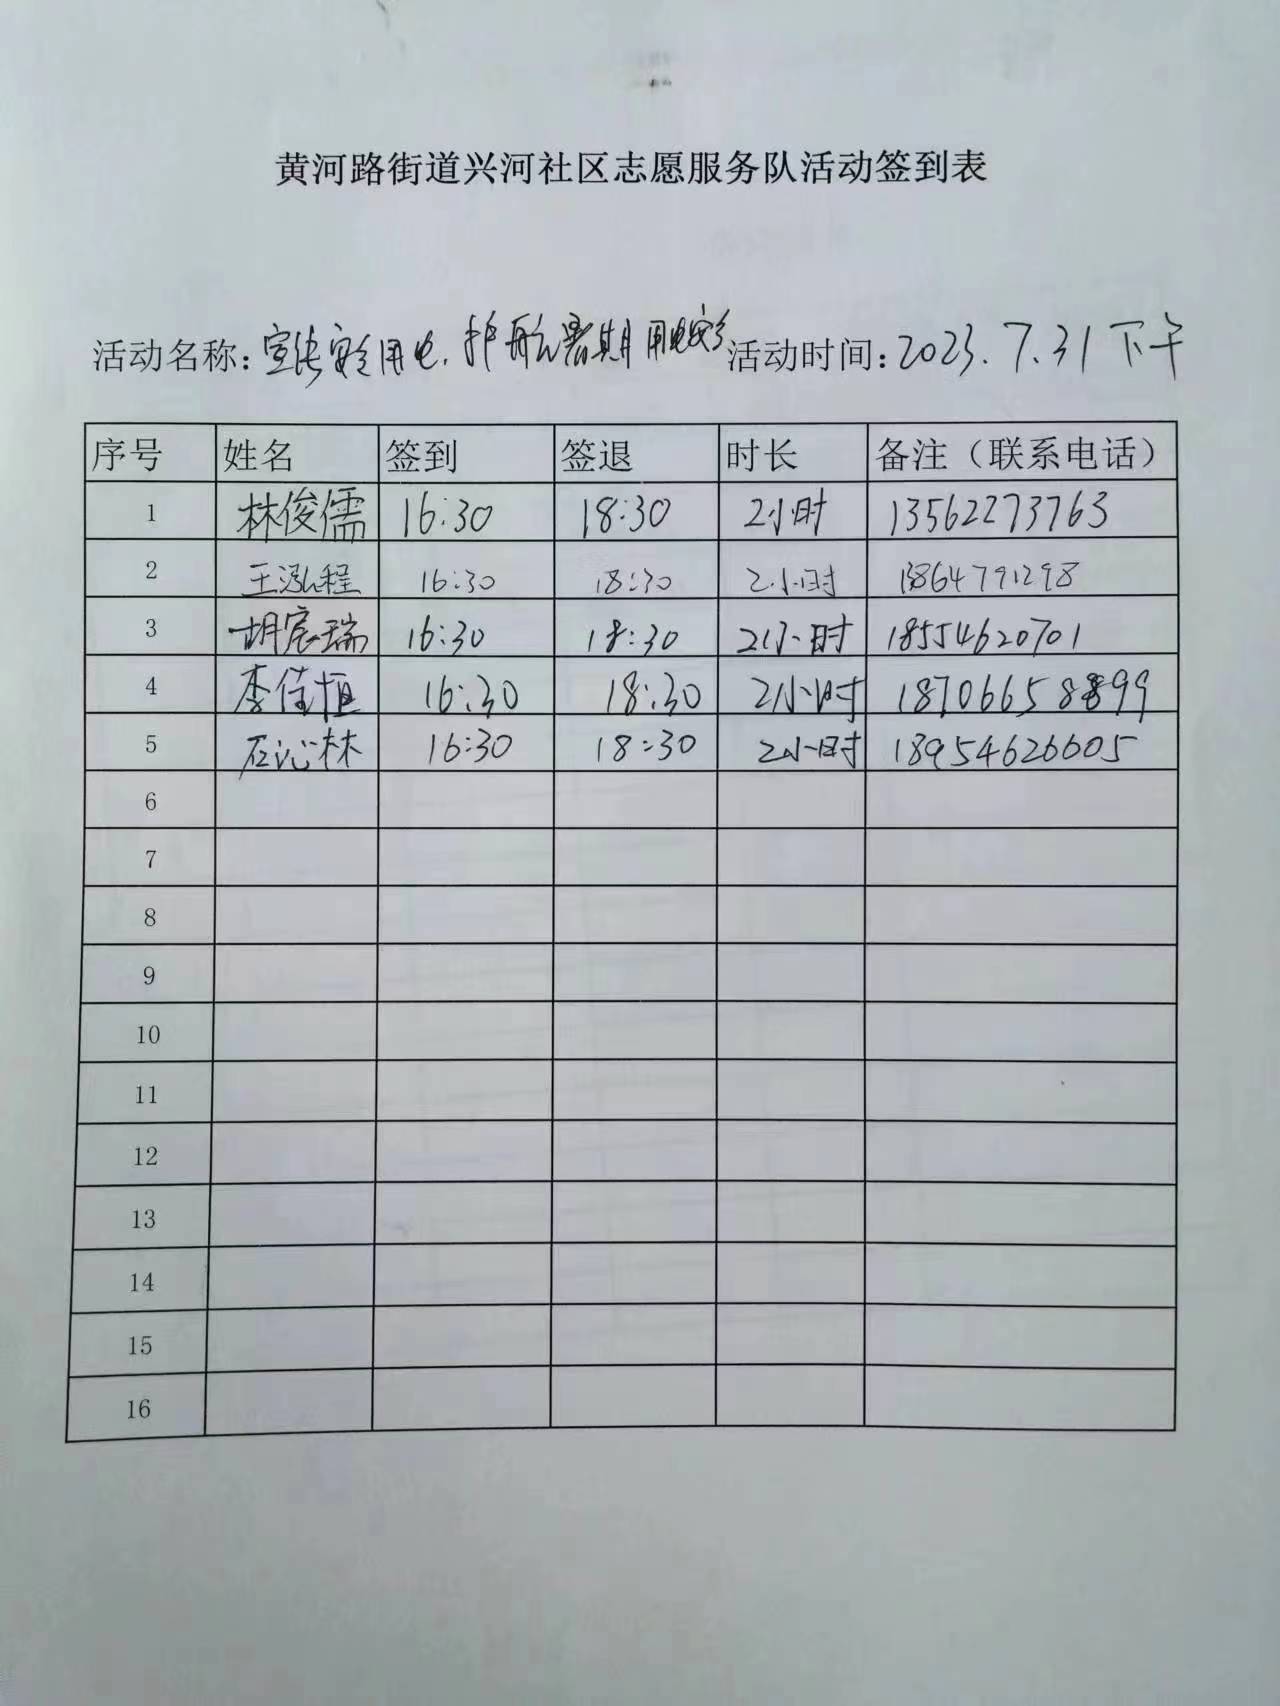 黄河路街道兴河社区志愿服务队活动签到表
活动名称：宣传安全用电，护航暑期用电安全 活动时间：2023.7.31下午
序号 姓名 签到 签退 时长 备注（联系电话）
1 林俊儒 16:30 18:30 2小时 13562273763
2 王泓程 16:30 18:30 2小时 13864791298
3 胡宸瑞 16:30 18:30 2小时 18554620701
4 李佳恒 16:30 18:30 2小时 18706658899
5 石沁林 16:30 18:30 2小时 18954626605
6
7
8
9
10
11
12
13
14
15
16